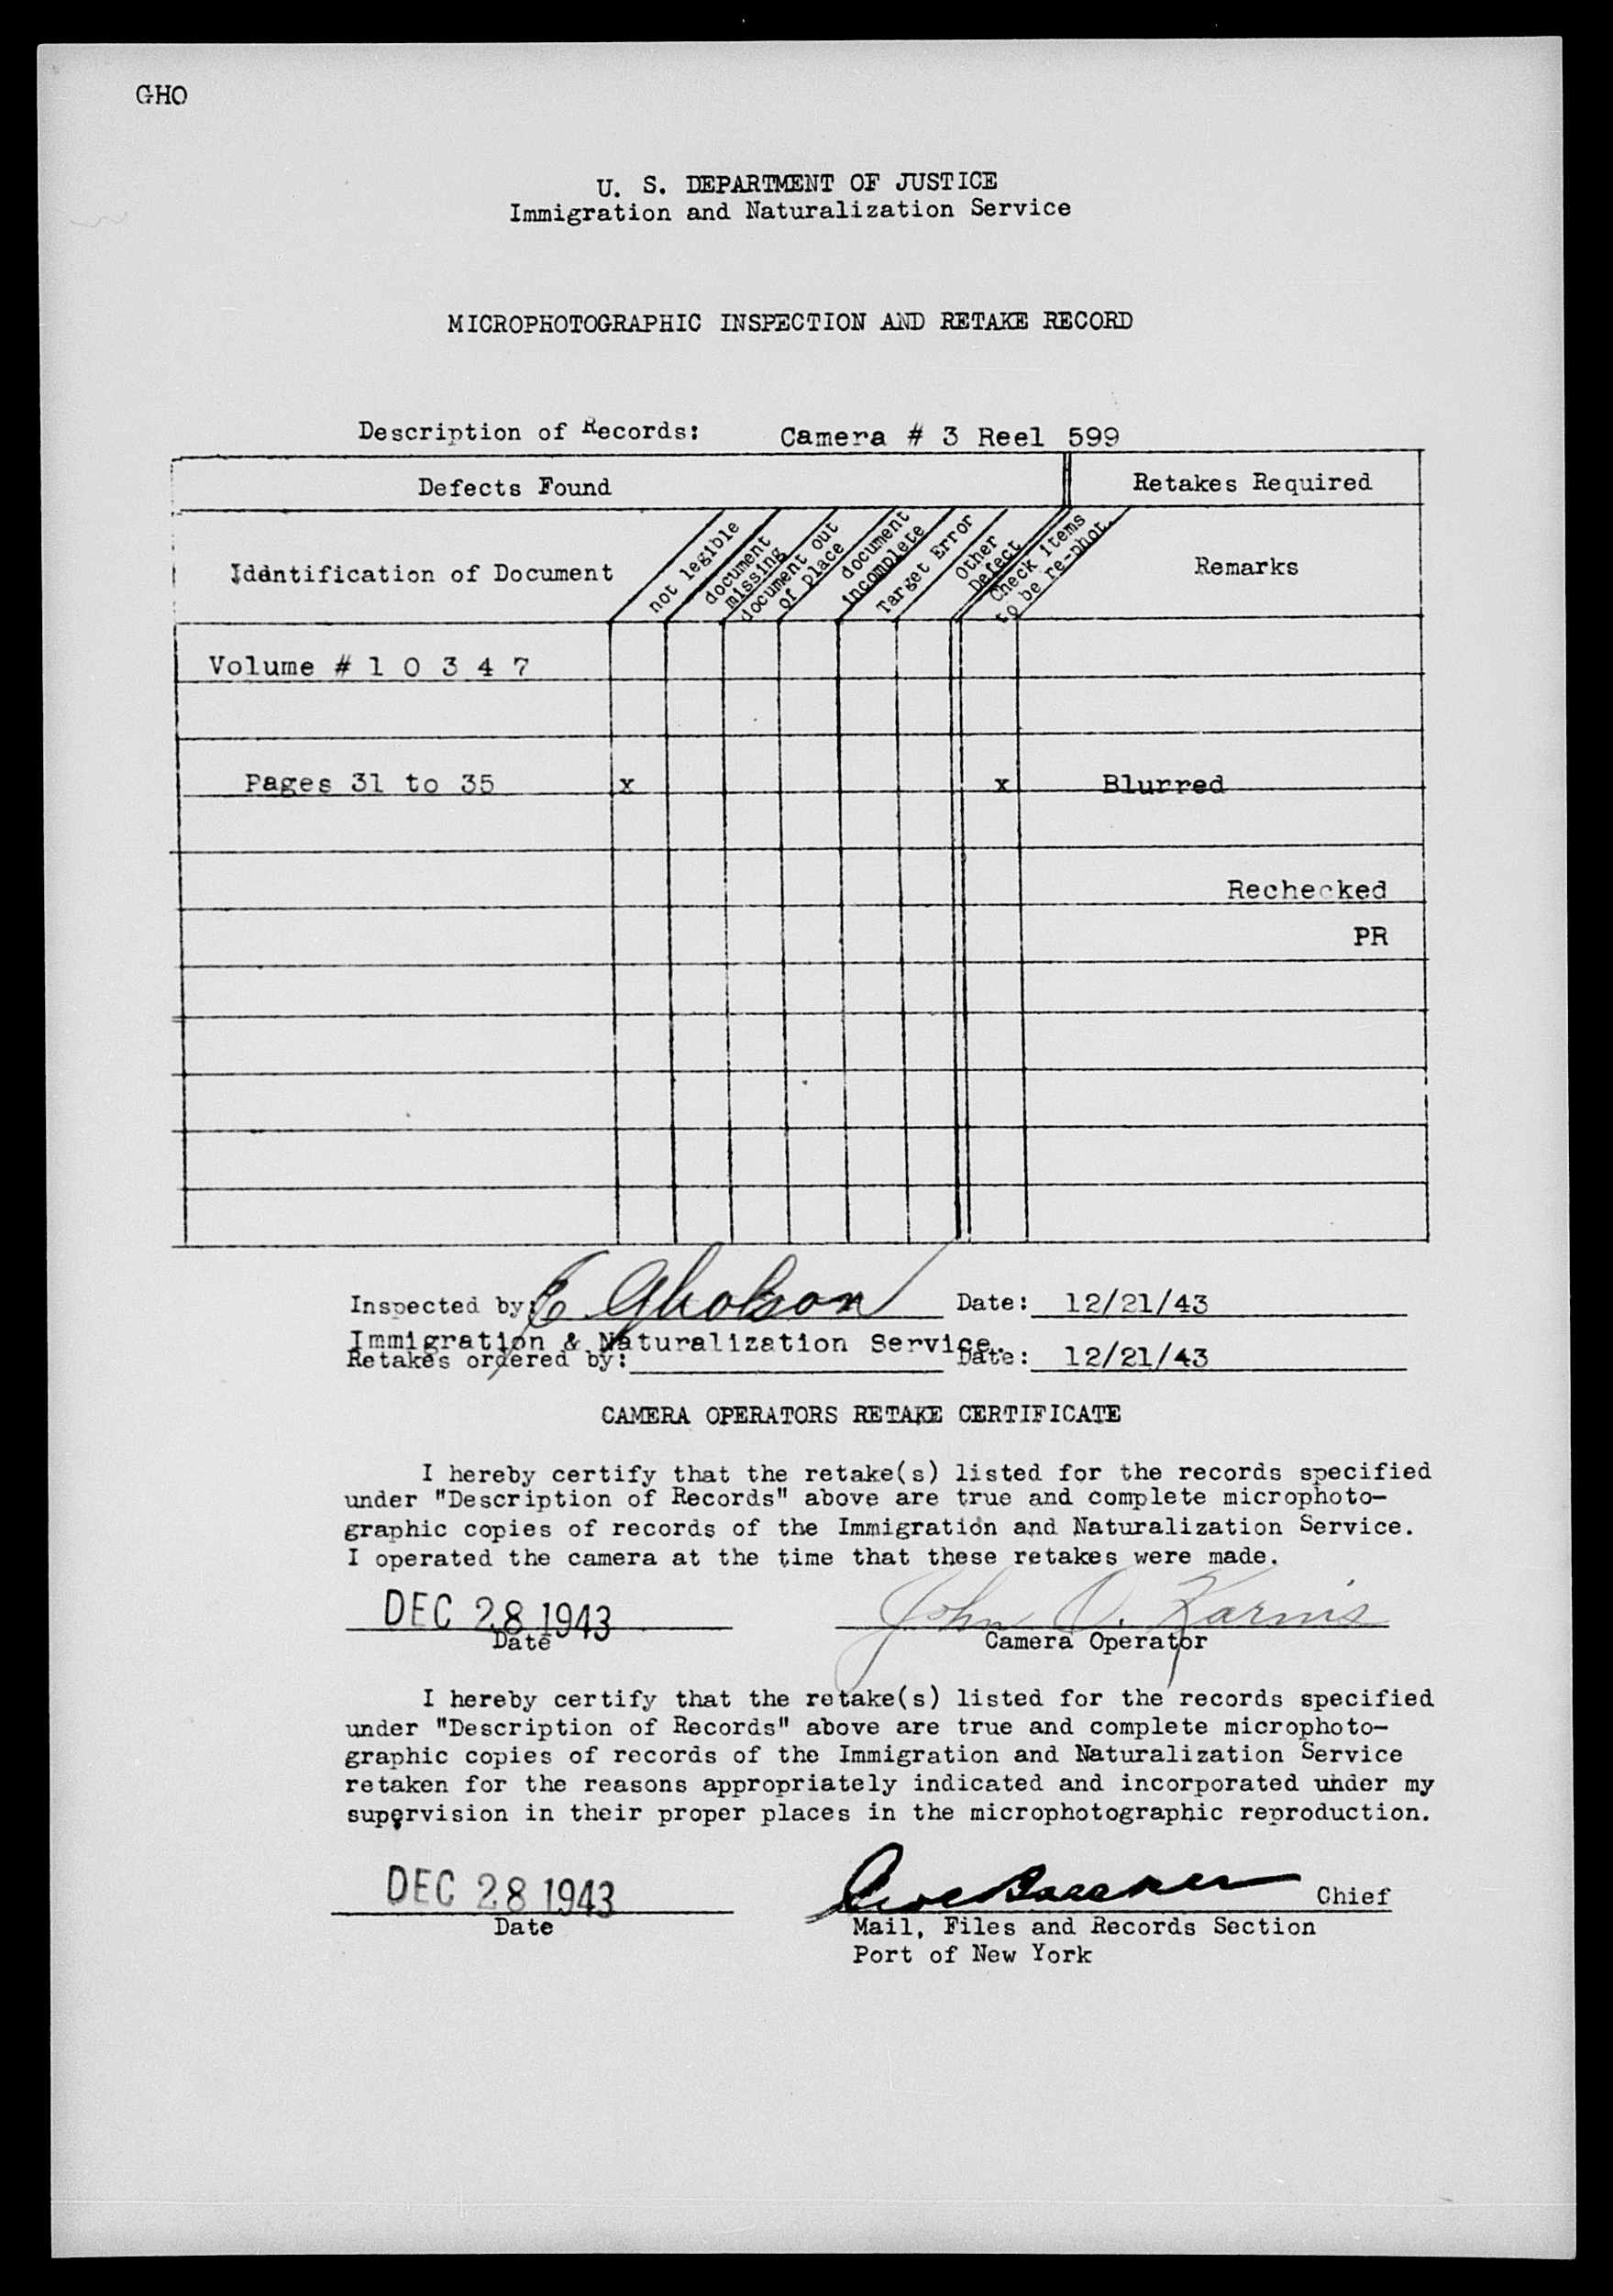 GHO
U. S. DEPARTMENT OF JUSTICE
Immigration and Naturalization Service
MICROPHOTOGRAPHIC INSPECTION AND RETAKE RECORD
Description of Records: Camera # 3 Reel 599
Defects Found
Retakes Required
Identification of Document
not legible
document
missing
document out
of place
document
incomplete
Target Error
Other
Defect
Check items
to be re-phot.
Remarks
Volume # 1 0 3 4 7
Pages 31 to 35 x x Blurred
Rechecked
PR
Inspected by: C Gholson Date: 12/21/43
Immigration & Naturalization Service.
Retakes ordered by: Date: 12/21/43
CAMERA OPERATORS RETAKE CERTIFICATE
I hereby certify that the retake(s) listed for the records specified
under "Description of Records" above are true and complete microphoto-
graphic copies of records of the Immigration and Naturalization Service.
I operated the camera at the time that these retakes were made.
DEC 28 1943 John
Date Camera Operator
I hereby certify that the retake(s) listed for the records specified
under "Description of Records" above are true and complete microphoto-
graphic copies of records of the Immigration and Naturalization Service
retaken for the reasons appropriately indicated and incorporated under my
supervision in their proper places in the microphotographic reproduction.
DEC 28 1943 Chief
Date Mail, Files and Records Section
Port of New York